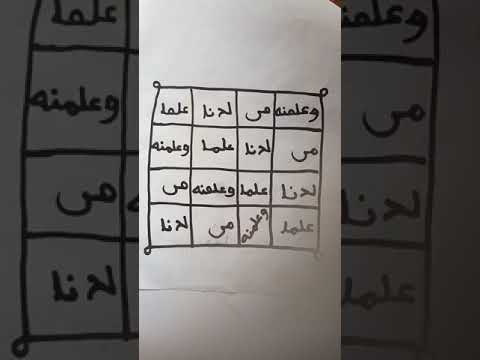 وعلمنه من لدنا علما
من لدنا علما وعلمنه
لدنا علما وعلمنه من
علما وعلمنه من لدنا